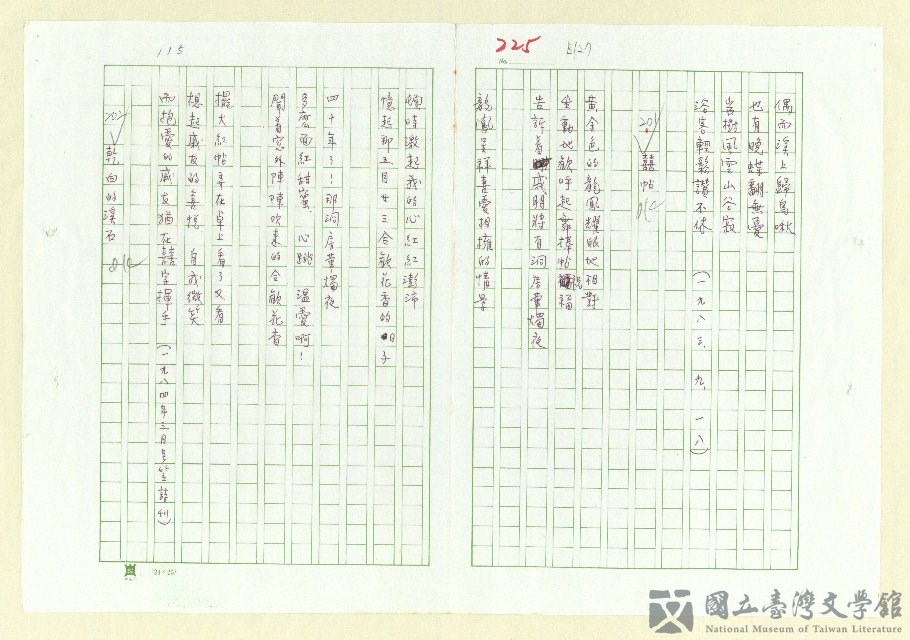 225
偶而溪上歸鳥啾
也有晚蝶翻無憂
岩樹風雲山谷寂
浴客輕鬆讚不休 (一九八三、九、一八)
201
囍帖
黃金色的龍鳳耀眼地相對
金動地歡呼起來捧帖祝福
告訴着戚朋將有洞房華燭夜
龍鳳呈祥喜愛相擁的情景
115
頓時激起我的心紅紅澎沛
憶起那五月廿三合歡花香的日子
四十年了!那洞房華燭夜
多麼面紅甜蜜、心跳 溫愛啊!
聞着窓外陣陣吹來的合歡花香
擺大紅帖弄在桌上看了又看
想起戚友的喜悅 自我微笑
而抱愛的戚友猶在囍字揮手 (一九八四年三月号笠詩刊)
202
乾白的溪石
(24×25)
國立臺灣文學館
National Museum of Taiwan Literature